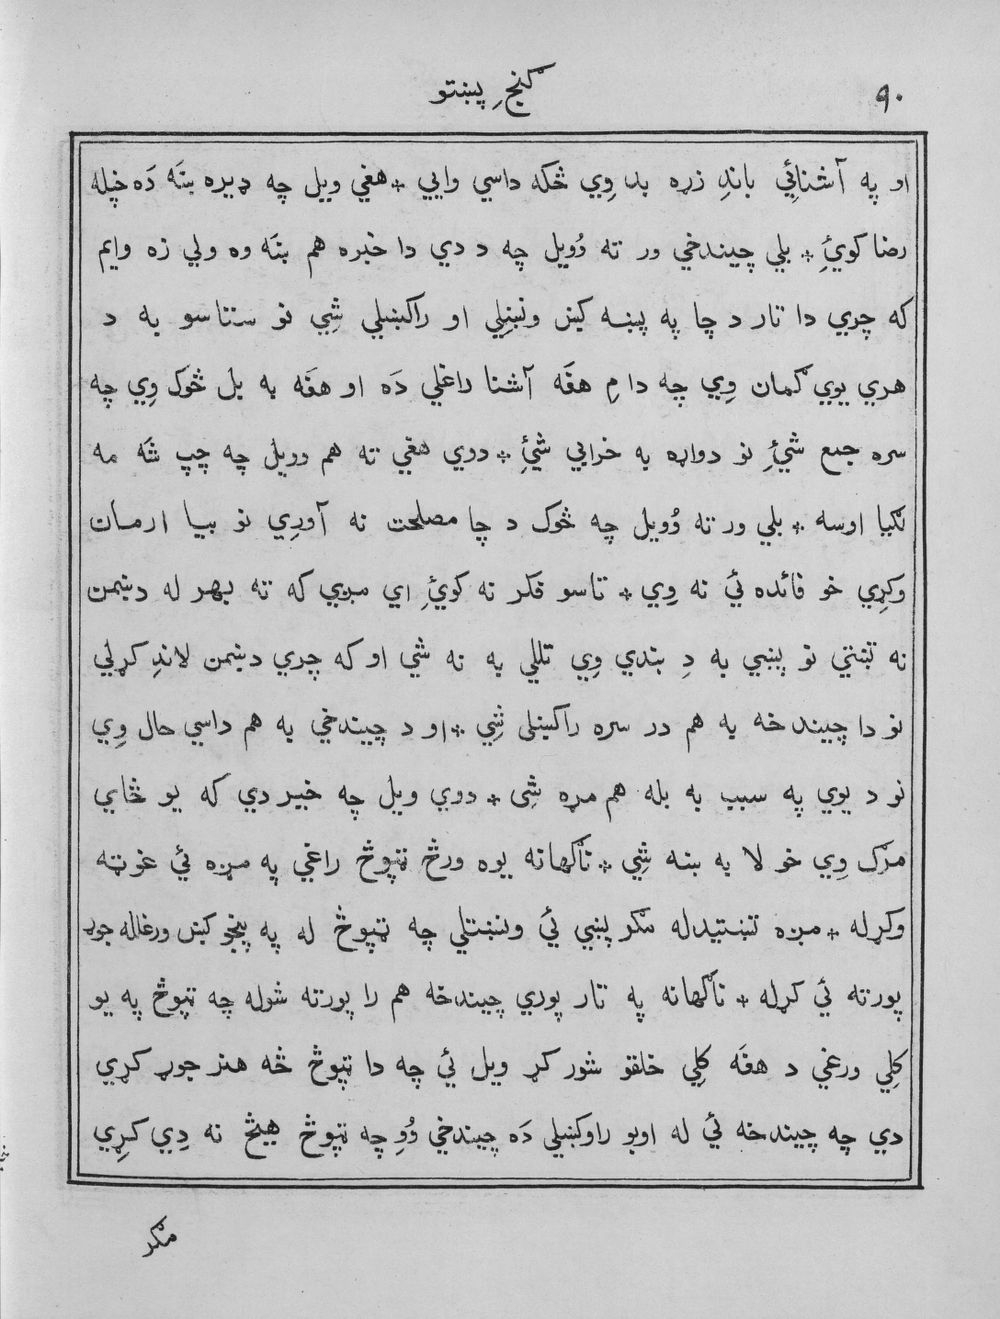 ٩٠
گنجِ پښتو
او په آشنائِي باندِ زړه بد وِي ځکه داسي وايي * هغي ويل چه ډيره ښَه دَه خپله
رضا کوئِ * بلي چيندخي ور ته وُويل چه د دي دا خبره هم ښَه وه ولي زه وايم
که چري دا تار د چا په پښه کښ ونښلِي او راکښلي شِي نو ستاسو به د
هري يوي گمان وِي چه دا مِ هغَه آشنا راغلي دَه او هغَه به بل څوک وِي چه
سره جمع شئِ نو دواړه به خرابي شئِ * دوي هغي ته هم وويل چه چپ شَه مه
نگيا اوسه * بلي ور ته وُويل چه څوک د چا مصلحت نه آورِي نو بيا ارمان
وکړِي خو فائده ئَي نه وِي * تاسو فکر نه کوئِ اي مږي که ته بهر له دښمن
نه تښتي نو پښي به دِ بندي وِي تللي به نه شي او که چري دښمن لاندِ کړلي
نو دا چيندخه به هم در سره راکښلي شِي * او د چيندخي به هم داسي حال وِي
نو د يوي په سبب به بله هم مړه شِي * دوي ويل چه خير دي که يو ځاي
مرگ وِي خو لا به ښه شِي * ناگهانه يوه ورځ ټپوځ راغي په مږه ئَي غوټه
وکړله * مږه تښتيدله مگر پښي ئَي ونښتلي چه ټپوځ له په پنجو کښ ورغاله جوړ
پورته ئَي کړله * ناگهانه په تار پوري چيندخه هم را پورته شوله چه ټپوځ په يو
کلِي ورغي د هغَه کلِي خلقو شور کړ ويل ئَي چه دا ټپوځ څه هنر جوړ کړي
دي چه چيندخه ئَي له اوبو راوکښلي دَه چيندخي وُو چه ټپوځ هيڅ نه دِي کړِي
مگر